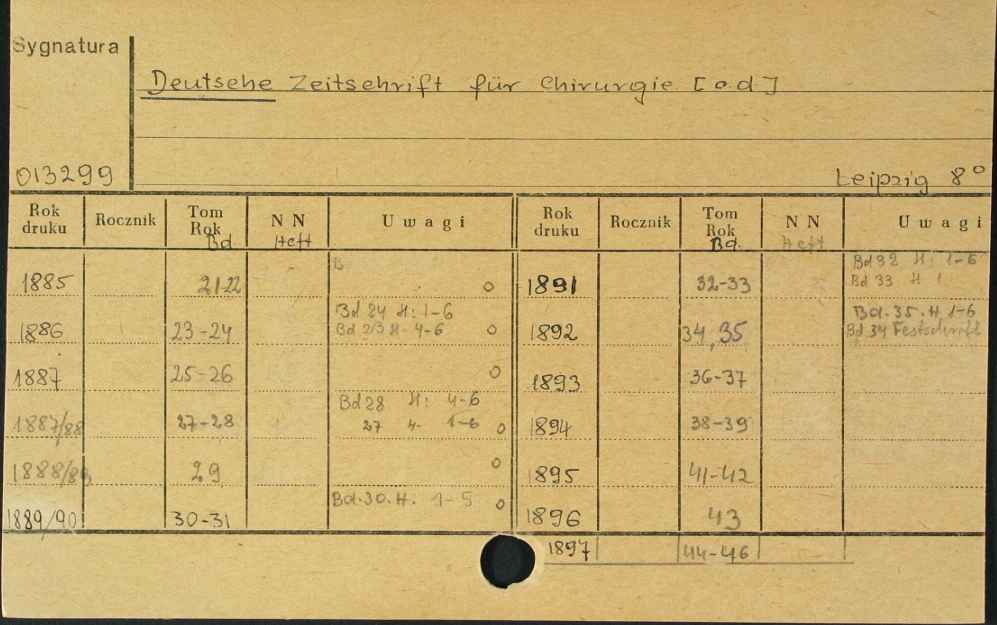 Sygnatura
Deutsche Zeitschrift für Chirurgie [o.d]
013299
Leipzig 8°
Rok druku Rocznik Tom Rok Bd NN Heft Uwagi Rok druku Rocznik Tom Rok Bd. NN Heft Uwagi
1885 21-22 B o
1886 23-24 Bd 24 H: 1-6
Bd 23 H- 4-6 o
1887 25-26 o
1887/88 27-28 Bd 28 H: 4-6
27 4- 1-6 o
1888/89 29 o
1889/90 30-31 Bd.30.H. 1-5 o
1891 32-33 Bd 32 H: 1-6
Bd 33 H 1
1892 34,35 Bd.35.H. 1-6
Bd 34 Festschrift
1893 36-37
1894 38-39
1895 41-42
1896 43
1897 44-46